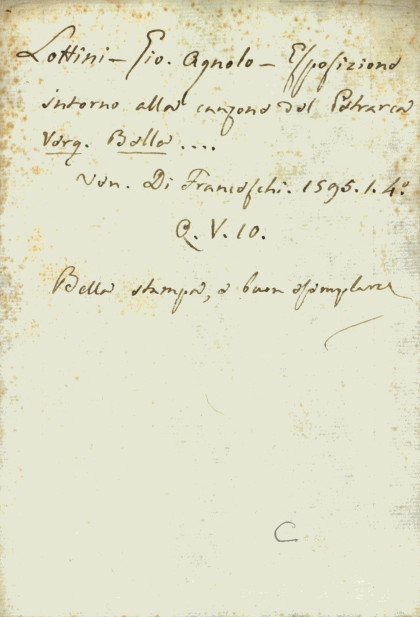 Lottini – Gio. Agnolo – Esposizione
intorno alla canzone del Petrarca
Verg. Bella ....
Ven. Di Franceschi. 1595. 1. 4.º
Q. V. 10.
Bella stampa, e buon esemplare
C